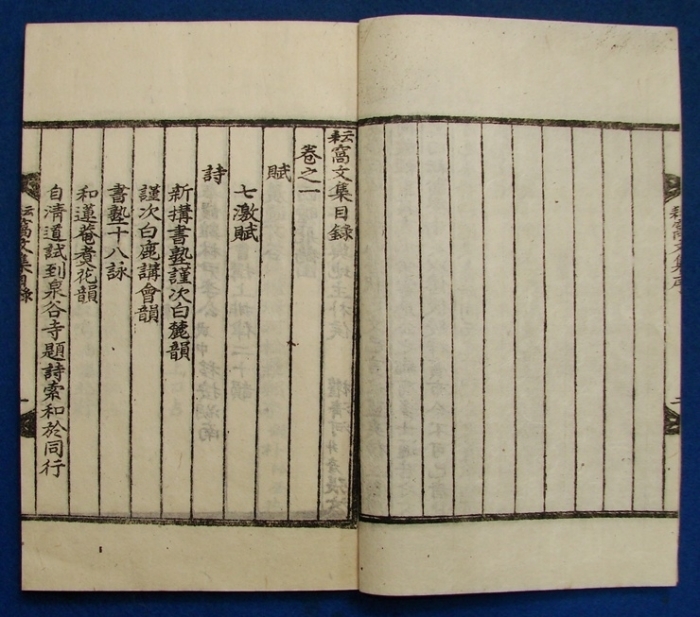 耘窩文集目錄
卷之一
賦
七激賦
詩
新搆書塾謹次白麓韻
謹次白鹿講會韻
書塾十八詠
和蓮菴煮花韻
自淸道試到泉谷寺題詩索和於同行
耘窩文集目錄
一